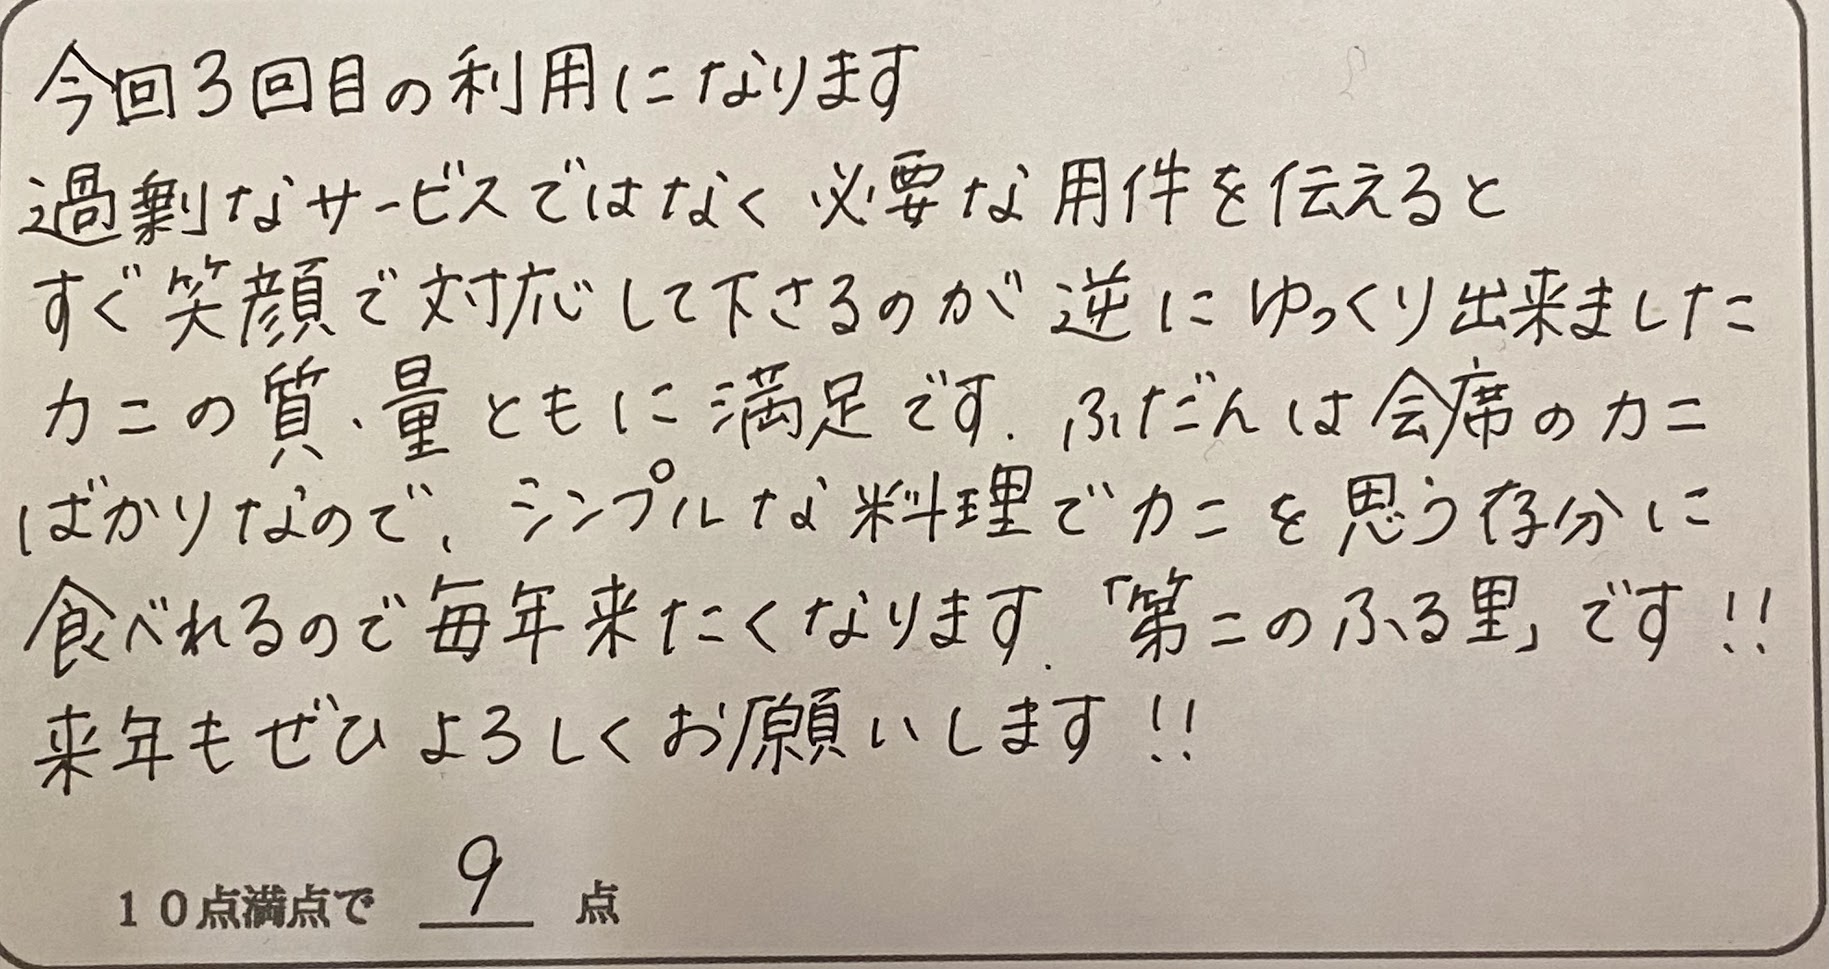 今回3回目の利用になります
過剰なサービスではなく必要な用件を伝えると
すぐ笑顔で対応して下さるのが逆にゆっくり出来ました
カニの質、量ともに満足です. ふだんは会席のカニ
ばかりなので、シンプルな料理でカニを思う存分に
食べれるので毎年来たくなります. 「第二のふる里」です!!
来年もぜひよろしくお願いします!!
10点満点で 9 点